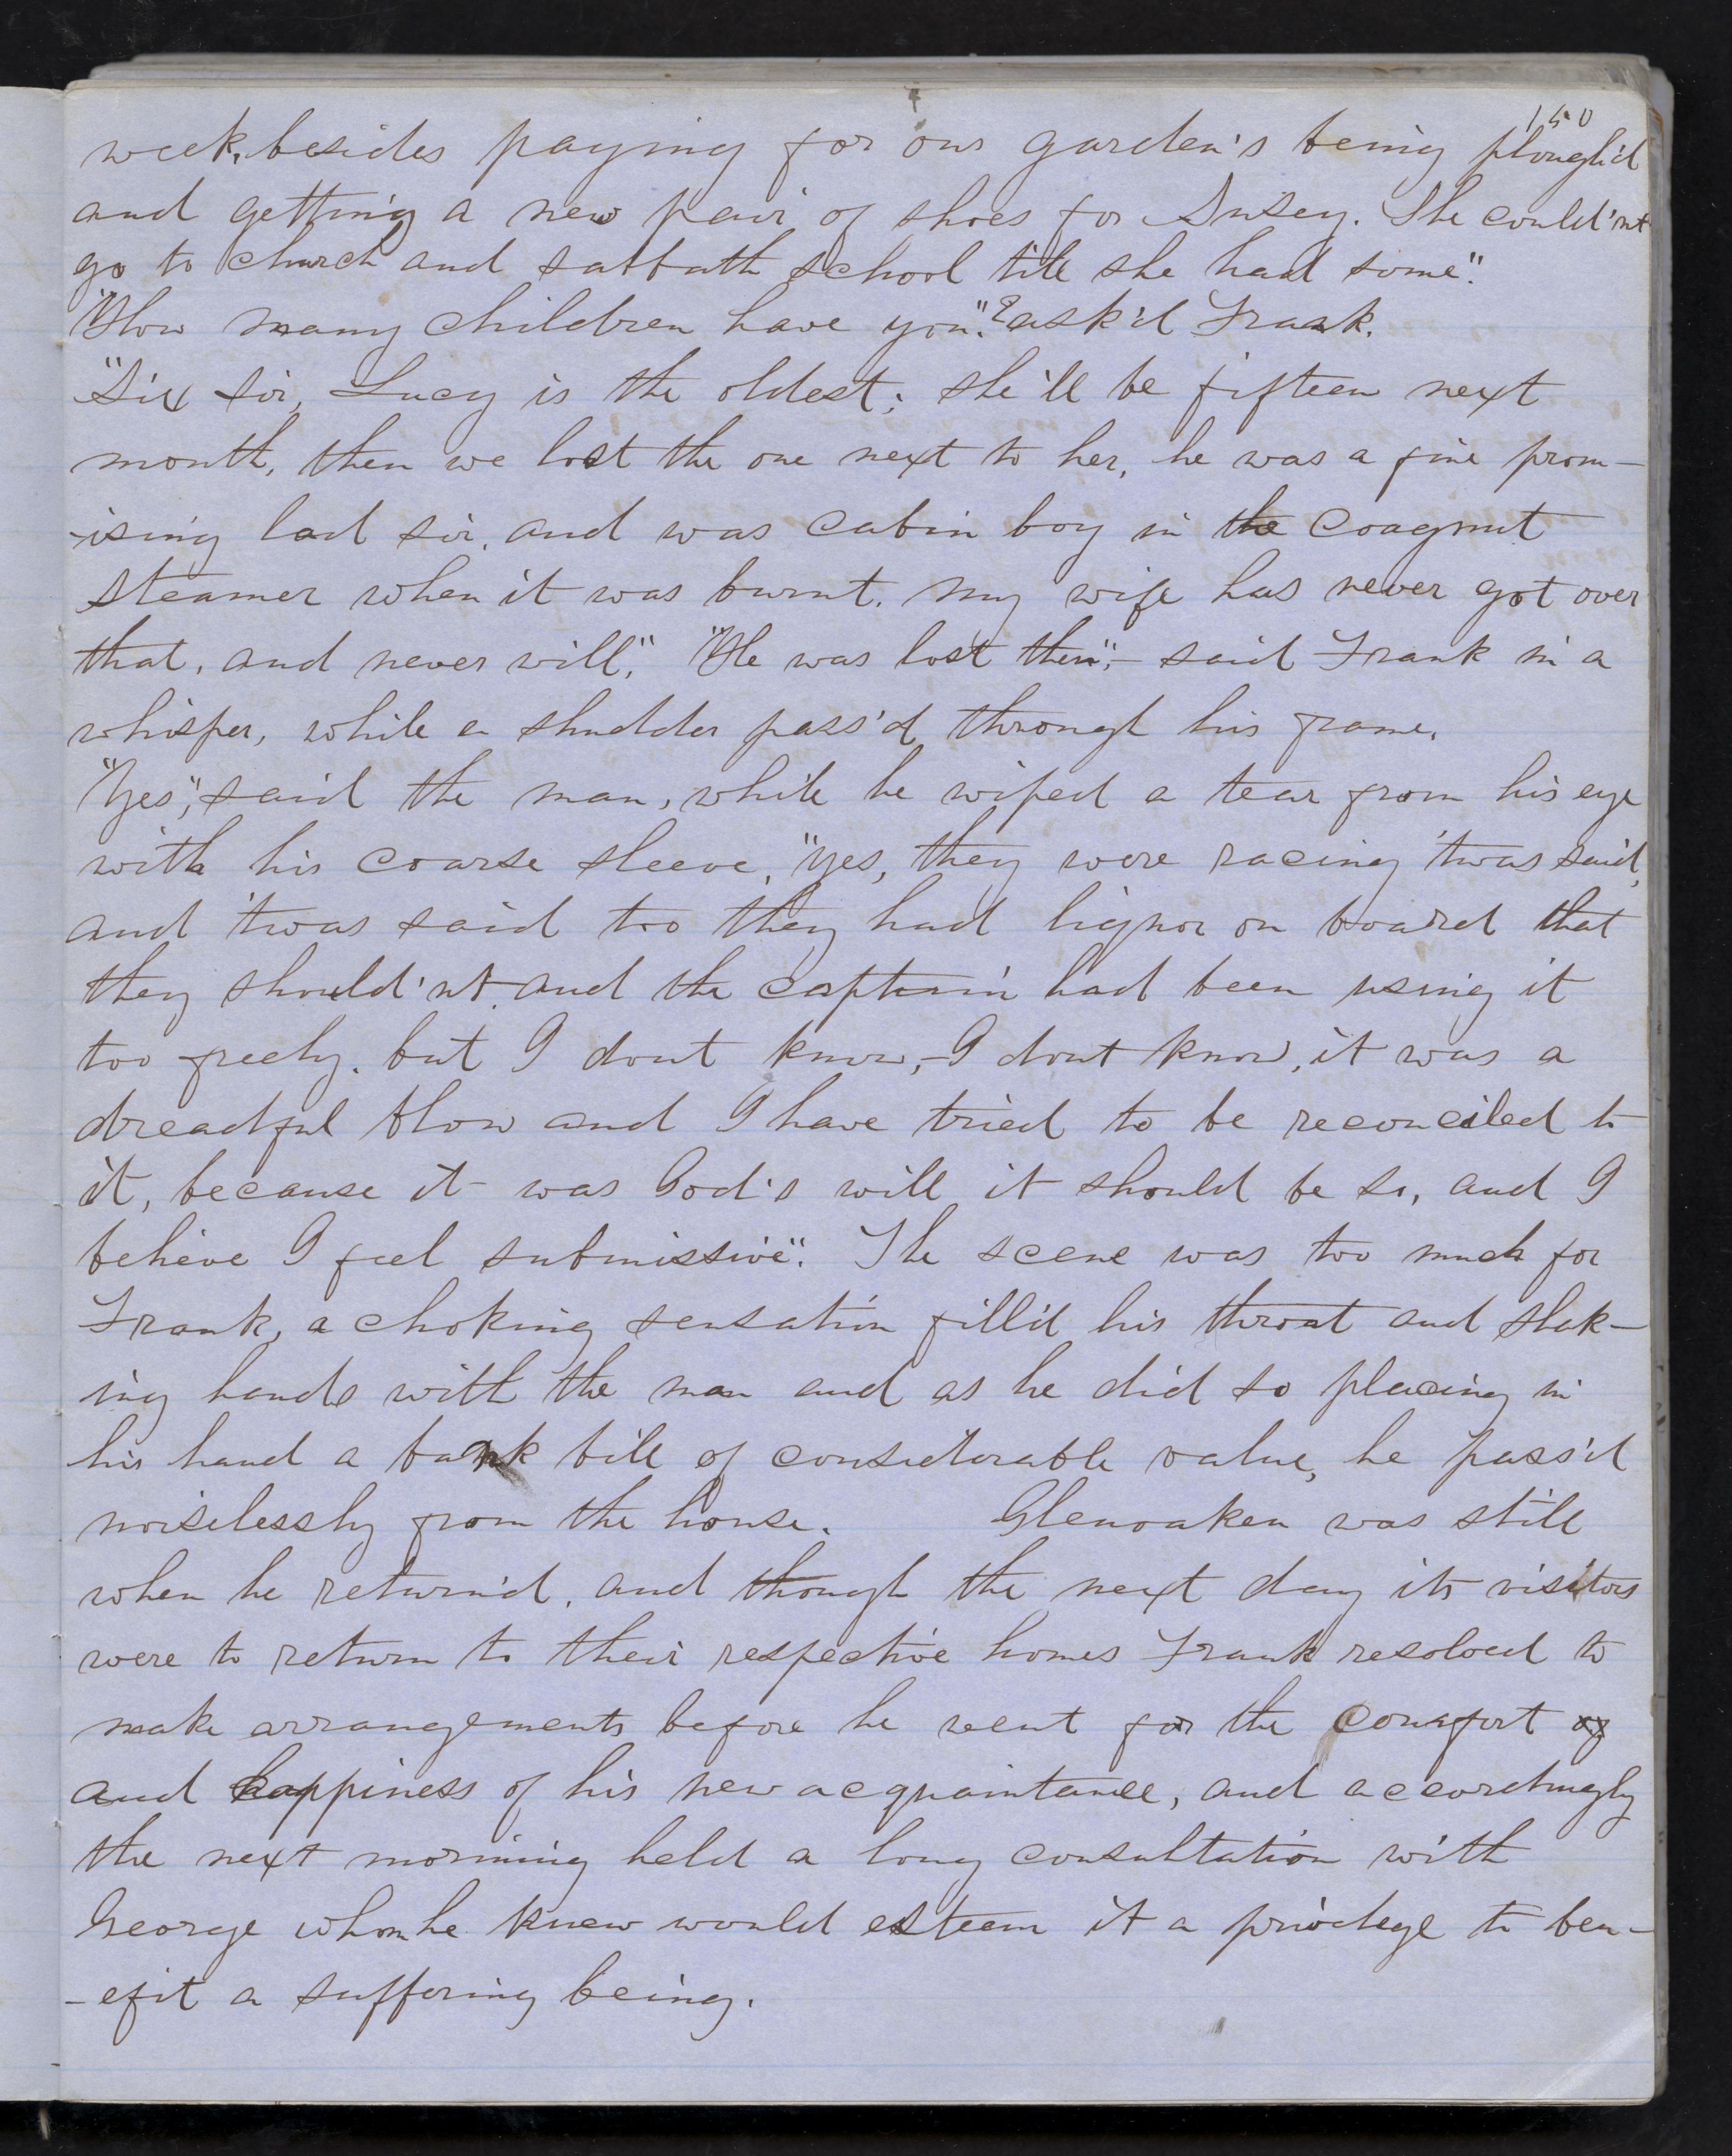 150
week, besides paying for our garden's being plough'd
and getting a new pair of shoes for Susey. She could'nt
go to church and sabbath school till she had some."
"How many children have you"? ask'd Frank.
"Six sir, Lucy is the oldest; she'll be fifteen next
month, then we lost the one next to her, he was a fine prom-
-ising lad sir, and was cabin boy in the
steamer when it was burnt. my wife has never got over
that, and never will". "He was lost then",- said Frank in a
whisper, while a shudder pass'd through his frame.
"Yes", said the man, while he wiped a tear from his eye
with his coarse sleeve, "yes, they were racing 'twas said,
and 'twas said too they had liquor on board that
they should'nt and the captain had been using it
too freely. but I dont know,- I dont know, it was a
dreadful blow and I have tried to be reconciled to
it, because it was God's will it should be so, and I
believe I feel submissive". The scene was too much for
Frank, a choking sensation fill'd his throat and shak-
ing hands with the man and as he did so placing in
his hand a bank bill of considerable value, he pass'd
noiselessly from the house. Glenoaken was still
when he return'd, and though the next day its visitors
were to return to their respective homes Frank resolved to
make arrangements before he went for the comfort of
and happiness of his new acquaintance, and accordingly
the next morning held a long consultation with
George whom he knew would esteem it a privilege to ben-
-efit a suffering being.